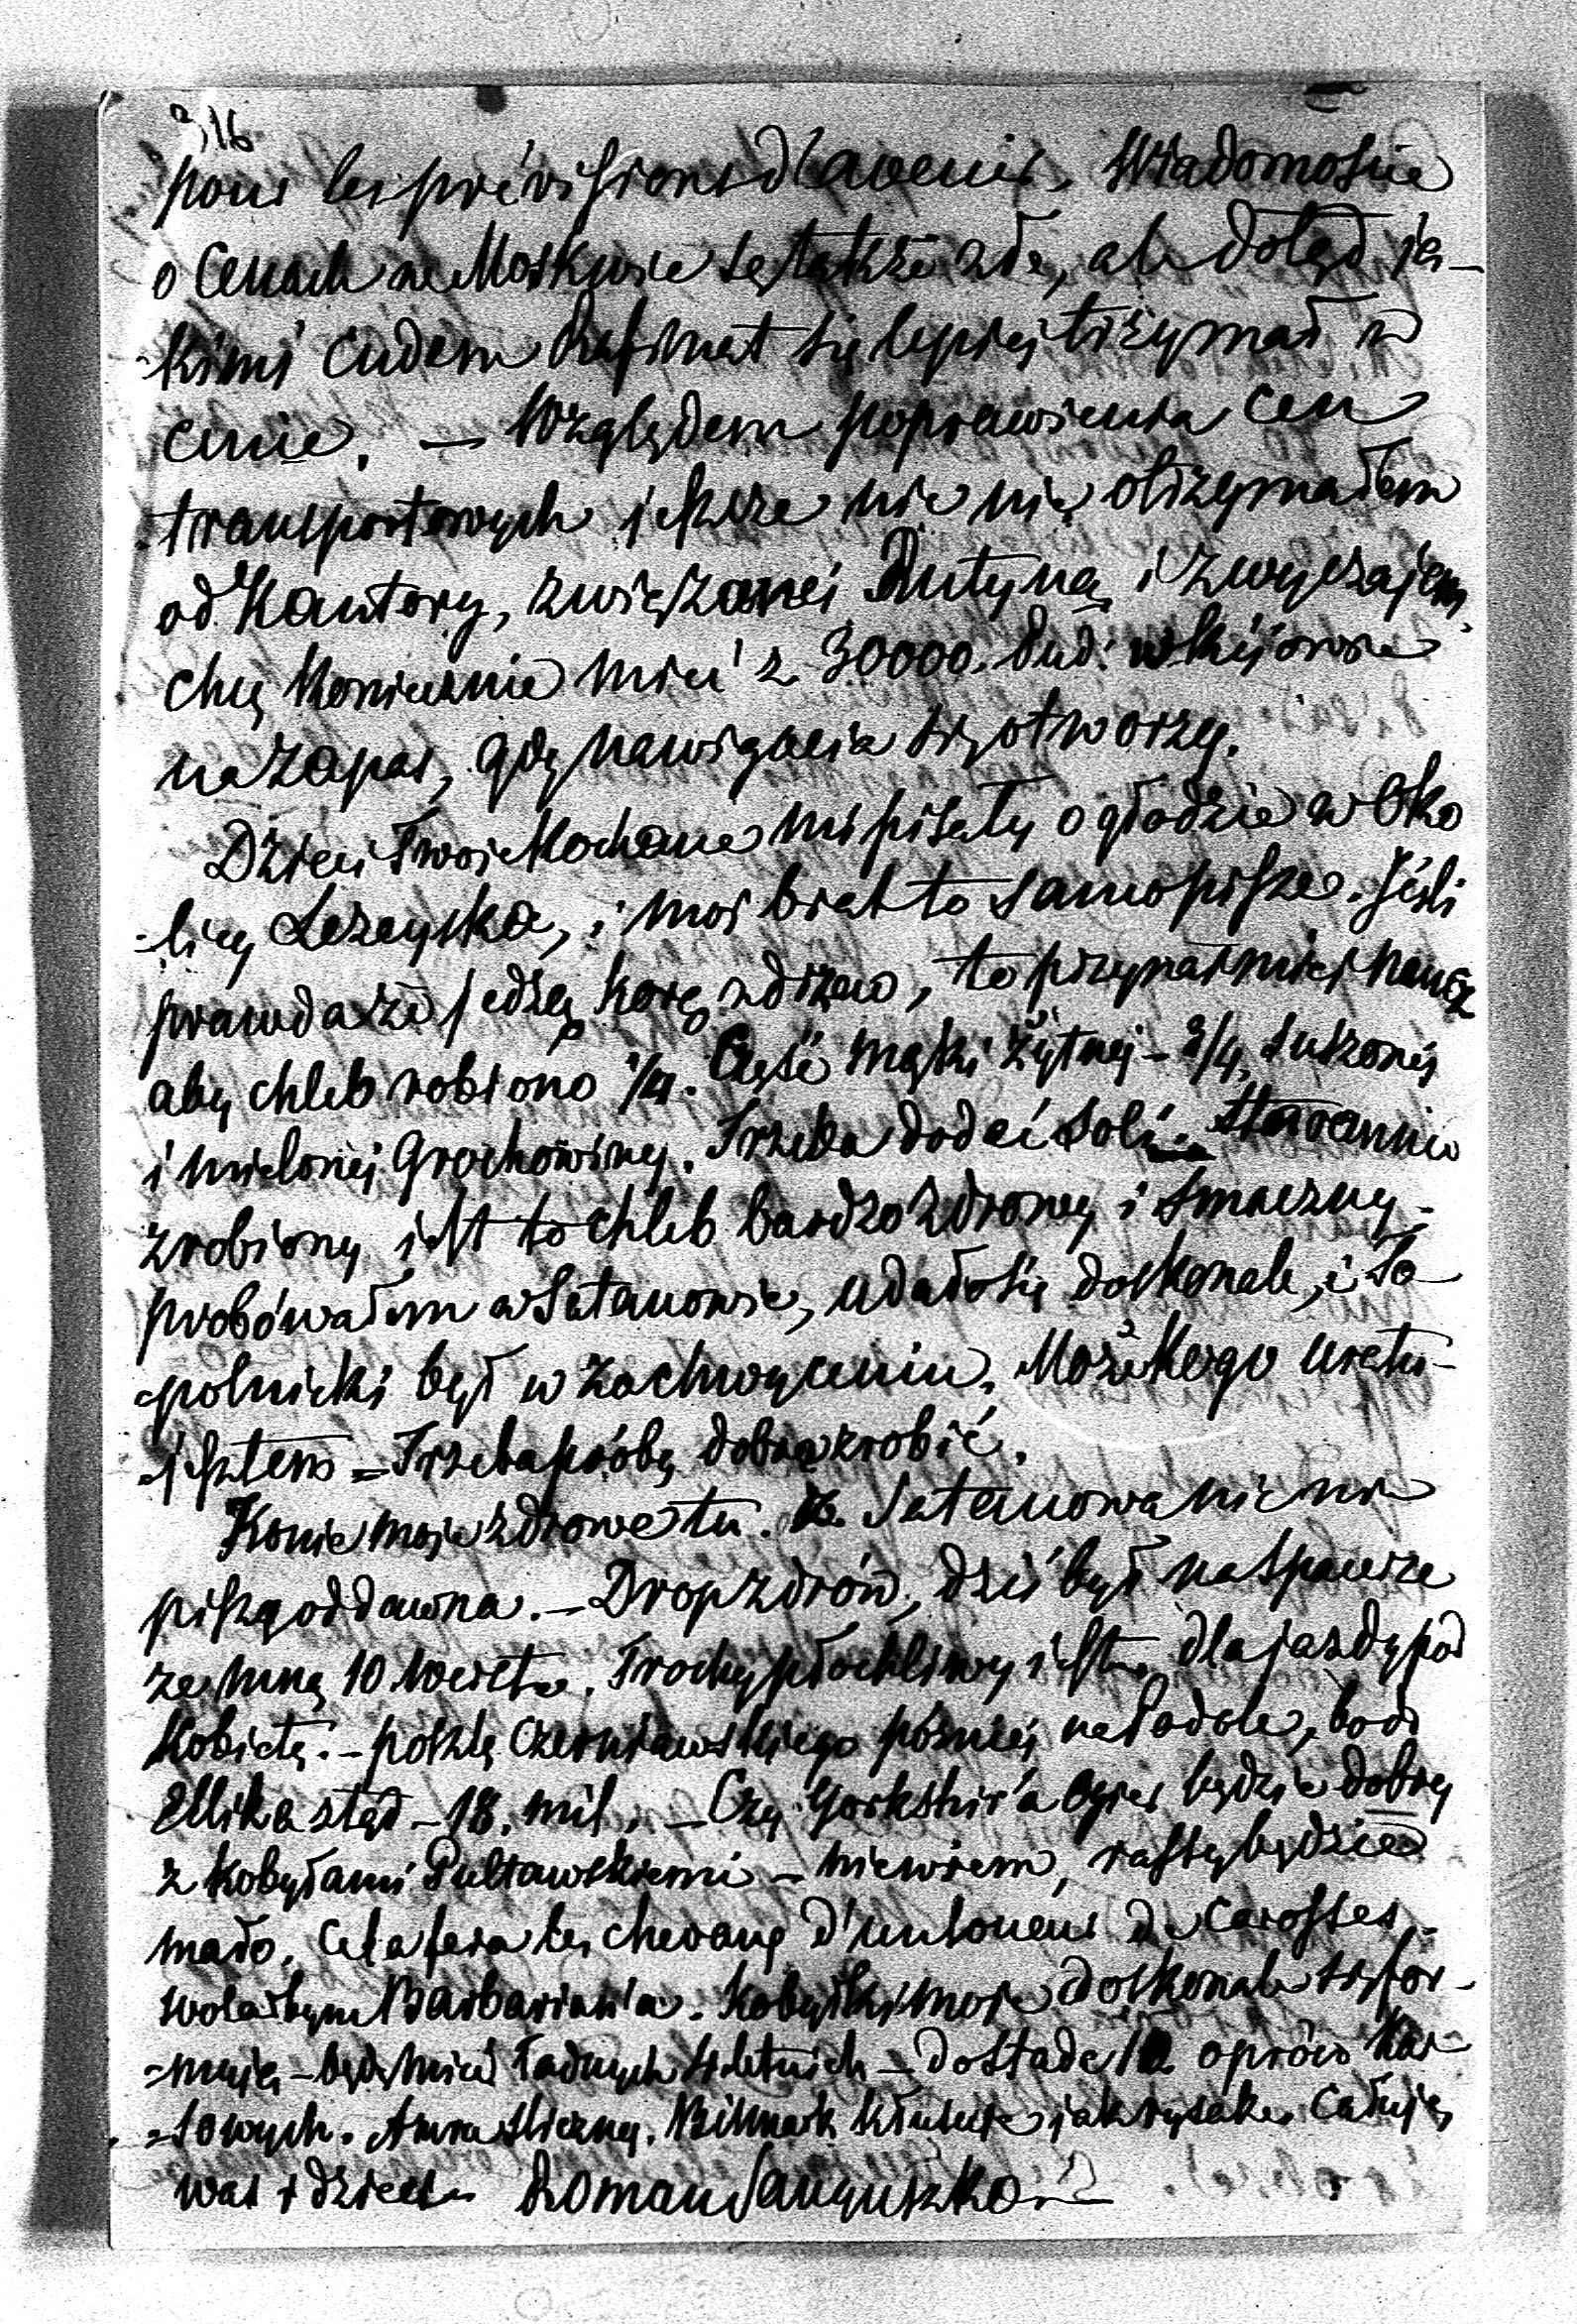 316
pour les prévisions d'avenir. Wiadomości
o Cenach w Moskwie są także złe, ale dotąd ja-
-kimś cudem Rafinat się lepiej trzymał w
cenie. — Względem poprawienia cen
transportowych jeszcze nic nie otrzymałem
od Kantory, związanej Rutyną i zwyczajem,
chcę koniecznie mieć z 30000. Pud: w Kijowie
na zapas, gdy nawigacia się otworzy.
Dzieci Twoje Kochane mi pisały o głodzie w Oko
-licy Leżeyska, i moj brat to samo pisze. Jeśli
prawda że jedzą korę z drzew, to przynajmniej naucz
aby chleb robiono 1/4. Część mąki żytnej – 3/4. suszonej
i mielonej Grochowiny. Trzeba dodać soli. Starannie
zrobiony jest to chleb bardzo zdrowy i smaczny.
probówałem w Satanowie, udało się doskonale, i So-
-polnicki był w zachwyceniu. Może kogo uratu-
-jesz tem = Trzeba próbę dobrą zrobić.
Konie moje zdrowe tu. Z Satanowa nic nie
piszą od dawna. – Drop zdrów, dziś był na Spacerze
ze mną 10 Werst. Trochę płochliwy jest dla jazdy pod
Kobietę. – poszlę Czerniawskiego później na Podole, bo od
Ellika stąd – 18. mil. – Czy Yorkshir'a Ogier będzie dobry
z kobyłami Pułtawskiemi – nie wiem, rassy będzie
mało. Cela fera les chevaux d'un loueur de Carosses.
wolałbym Barbarian'a. Kobyłki moje doskonale się for-
=mują – będę mieć ładnych 4 letnich – dostade 12 oprócz Kar-
=sowych. Amra śliczny. Bismark kłusuje jak rysak. Całuję
was i dzieci Roman Sanguszko